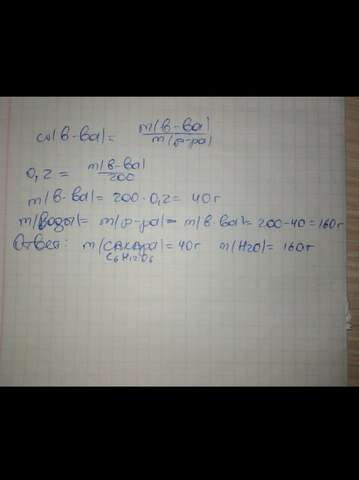 ω(в-ва) = m(в-ва)/m(р-ра)
0,2 = m(в-ва)/200
m(в-ва) = 200 · 0,2 = 40 г
m(воды) = m(р-ра) - m(в-ва) = 200 - 40 = 160 г
Ответ: m(сахара) = 40 г m(H2O) = 160 г
C6H12O6